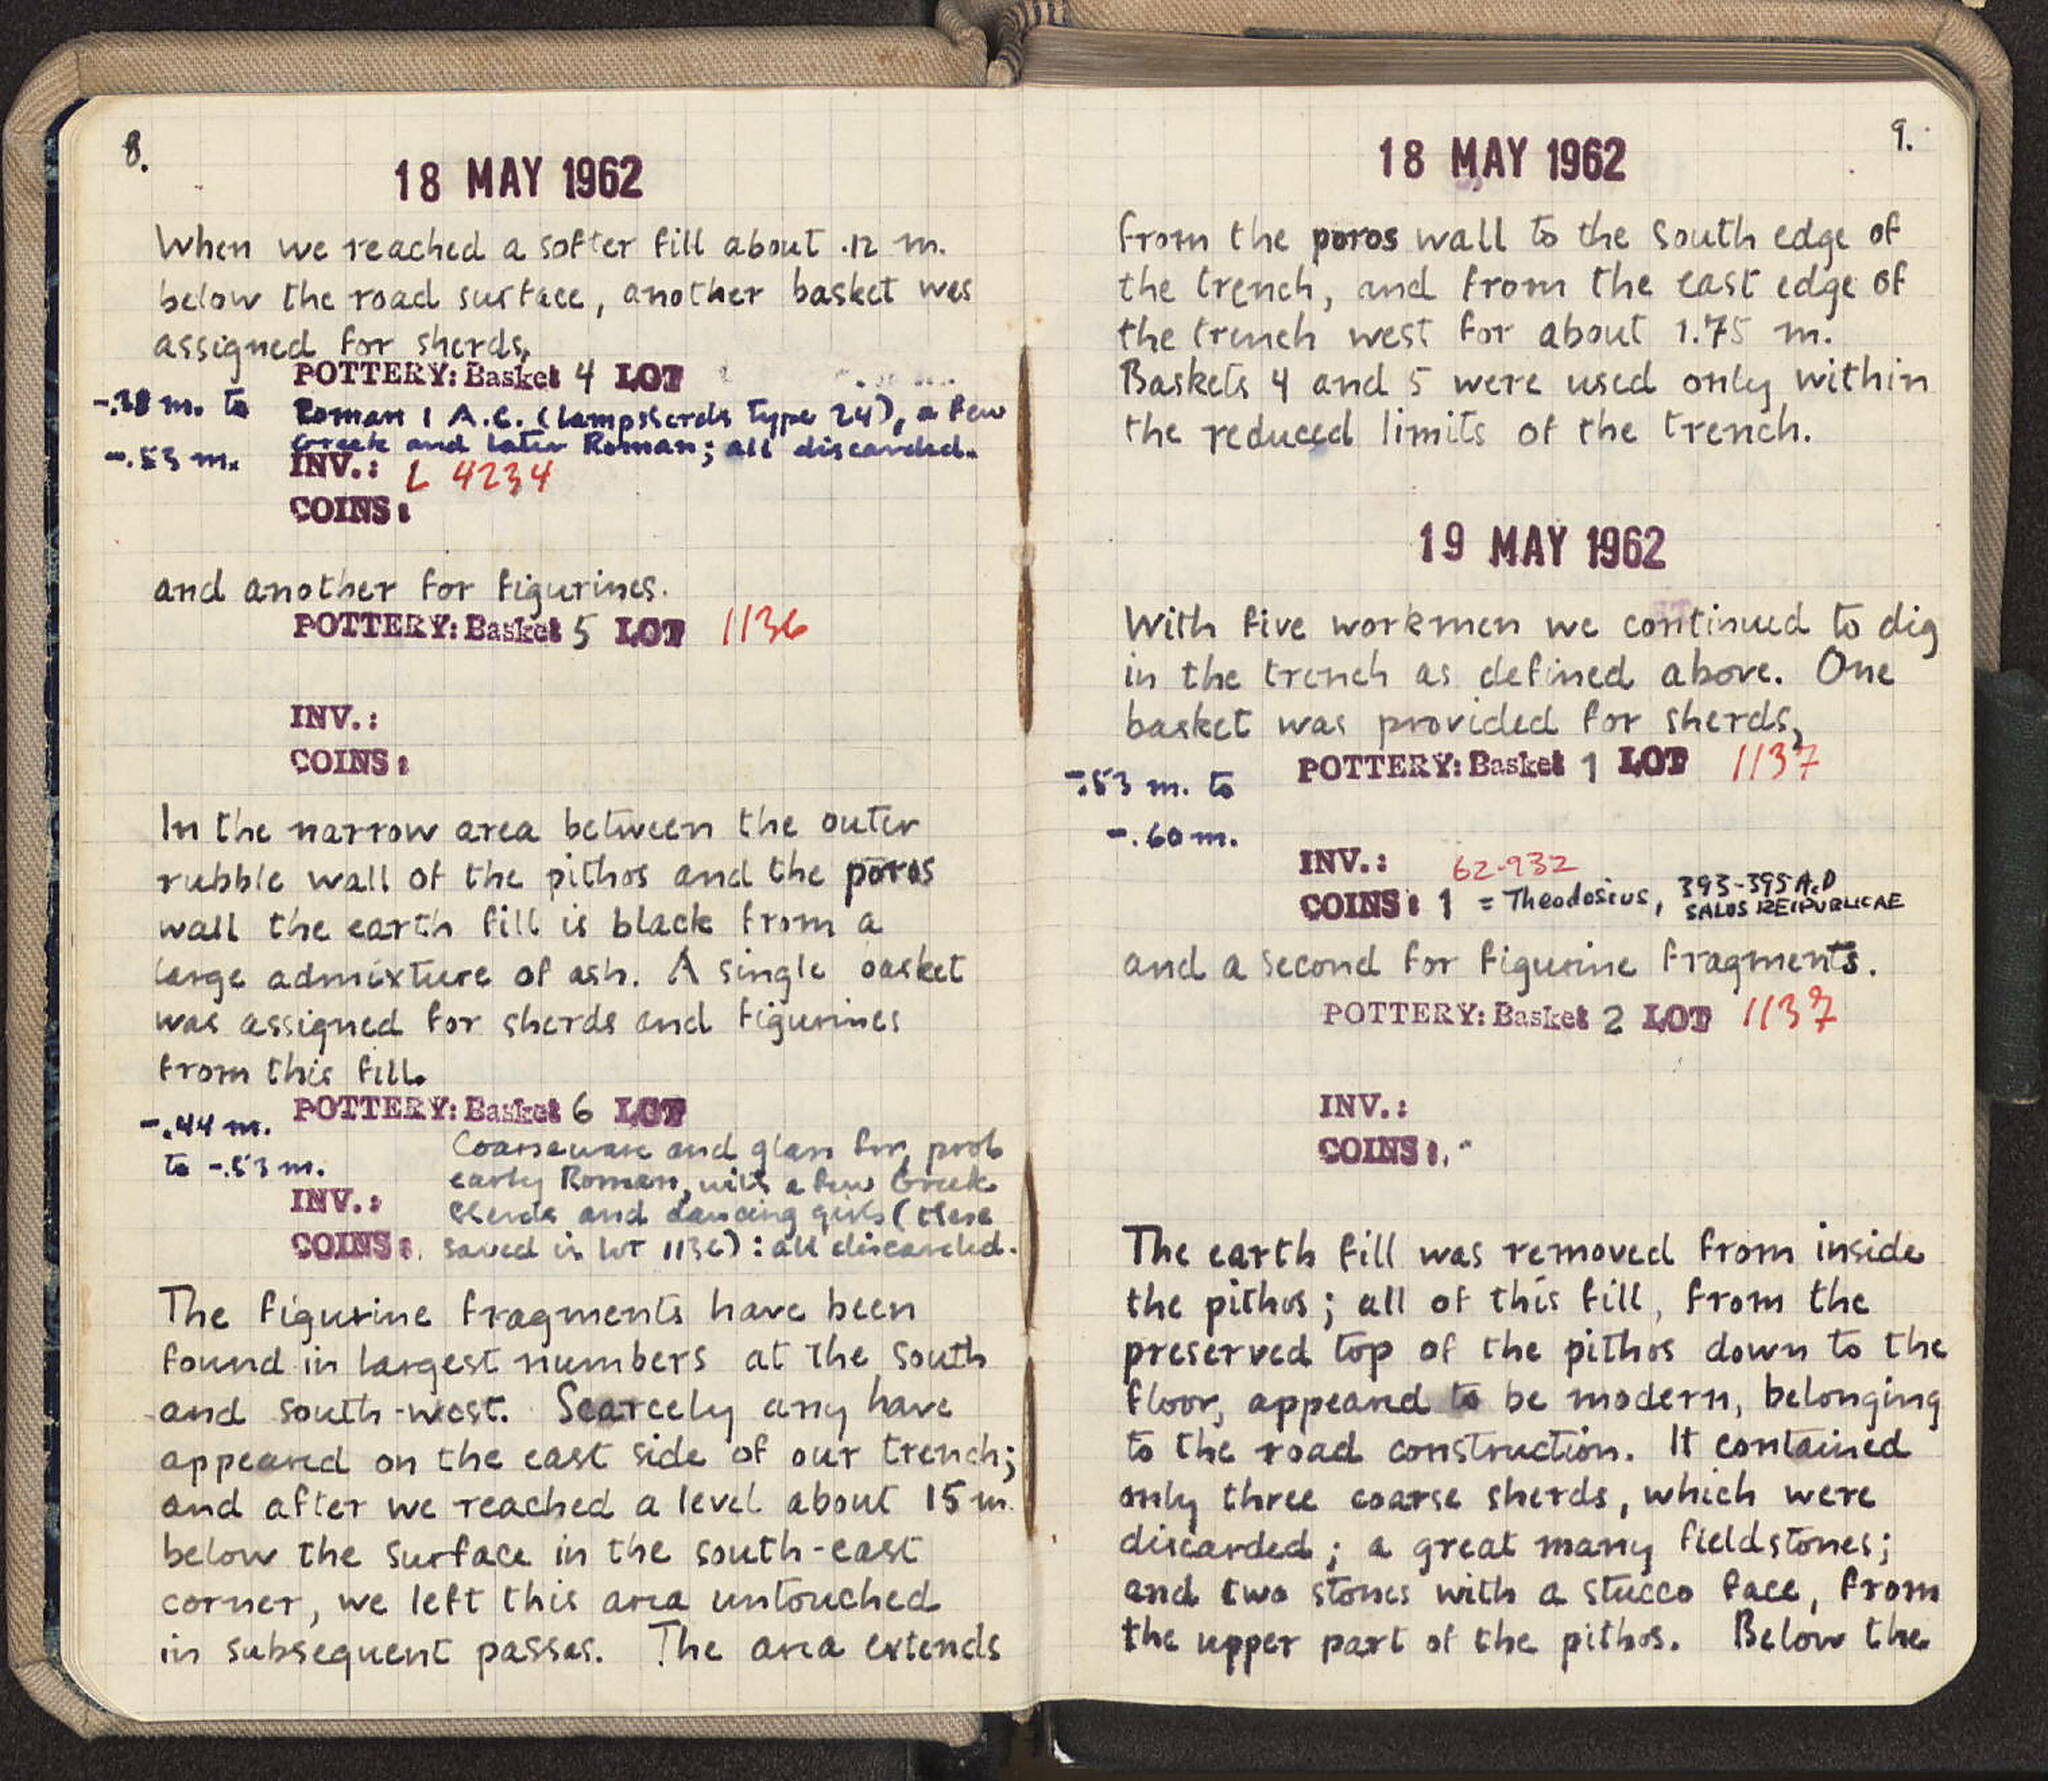 8.
18 MAY 1962
When we reached a softer fill about .12 m.
below the road surface, another basket was
assigned for sherds,
POTTERY: Basket 4 LOT
-.38 m. to
-.53 m.
Roman 1 A.C. (lampsherds type 24), a few
Greek and later Roman; all discarded.
INV.: L 4234
COINS:
and another for figurines.
POTTERY: Basket 5 LOT 1136
INV.:
COINS:
In the narrow area between the outer
rubble wall of the pithos and the poros
wall the earth fill is black from a
large admixture of ash. A single basket
was assigned for sherds and figurines
from this fill.
POTTERY: Basket 6 LOT
-.44 m.
to -.53 m.
Coarseware and glass fr, prob
early Roman, with a few Greek
sherds and dancing girls (these
saved in lot 1136): all discarded.
INV.:
COINS:
The figurine fragments have been
found in largest numbers at the south
and south-west. Scarcely any have
appeared on the east side of our trench;
and after we reached a level about 15 m
below the surface in the south-east
corner, we left this area untouched
in subsequent passes. The area extends
9.
18 MAY 1962
from the poros wall to the south edge of
the trench, and from the east edge of
the trench west for about 1.75 m.
Baskets 4 and 5 were used only within
the reduced limits of the trench.
19 MAY 1962
With five workmen we continued to dig
in the trench as defined above. One
basket was provided for sherds,
POTTERY: Basket 1 LOT 1137
-.53 m. to
-.60 m.
INV.: 62-932
COINS: 1 = Theodosius, 393-395 A.D
SALUS REIPUBLICAE
and a second for figurine fragments.
POTTERY: Basket 2 LOT 1137
INV.:
COINS:
The earth fill was removed from inside
the pithos; all of this fill, from the
preserved top of the pithos down to the
floor, appeared to be modern, belonging
to the road construction. It contained
only three coarse sherds, which were
discarded; a great many fieldstones;
and two stones with a stucco face, from
the upper part of the pithos. Below the